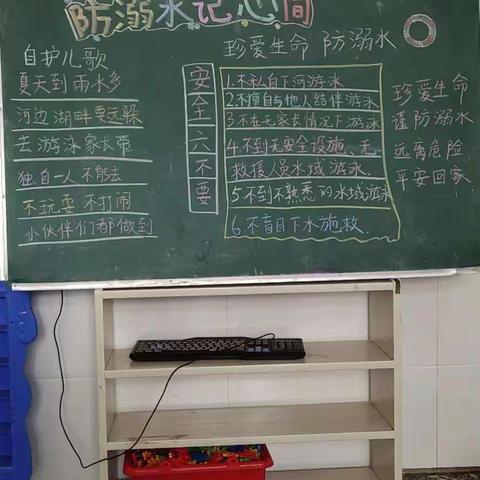 防溺水记心间
珍爱生命 防溺水
自护儿歌
夏天到 雨水多
河边 湖畔 要远躲
去 游泳 家长带
独自一人 不能去
不玩耍 不打闹
小伙伴们都做到
安全六不要
1.不私自下河游泳
2.不擅自与他人结伴游泳
3.不在无家长情况下游泳
4.不到无安全设施、无
救援人员水域游泳.
5.不到不熟悉的水域游泳
6.不盲目下水施救.
珍爱生命
谨防溺水
远离危险
平安回家